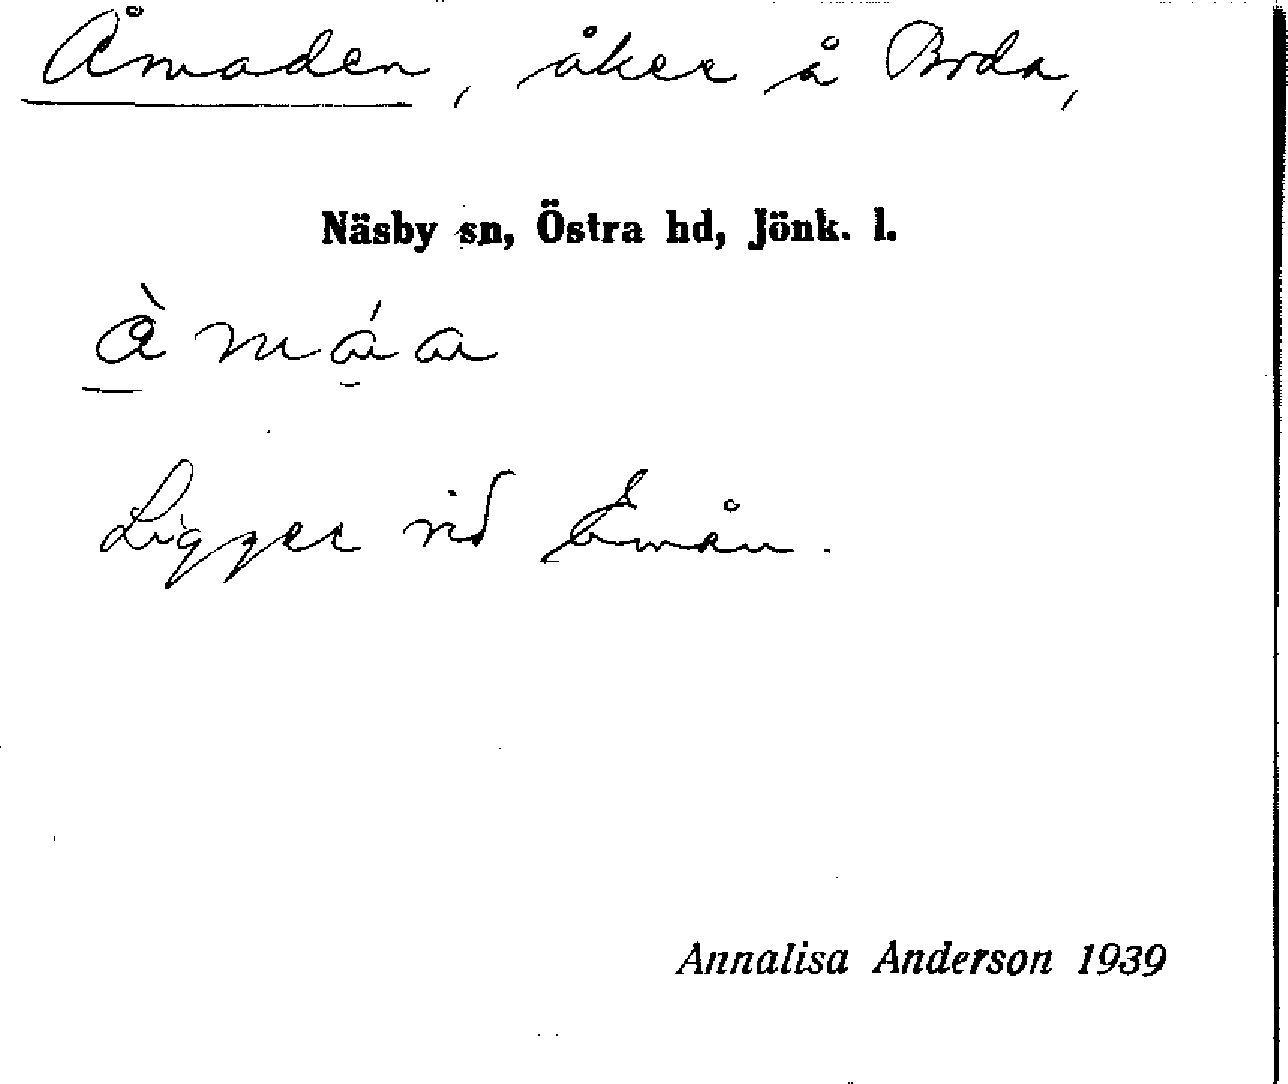 Åmaden, åker å Boda,
Näsby sn, Östra hd, Jönk. l.
Ligger vid Emån.
Annalisa Anderson 1939